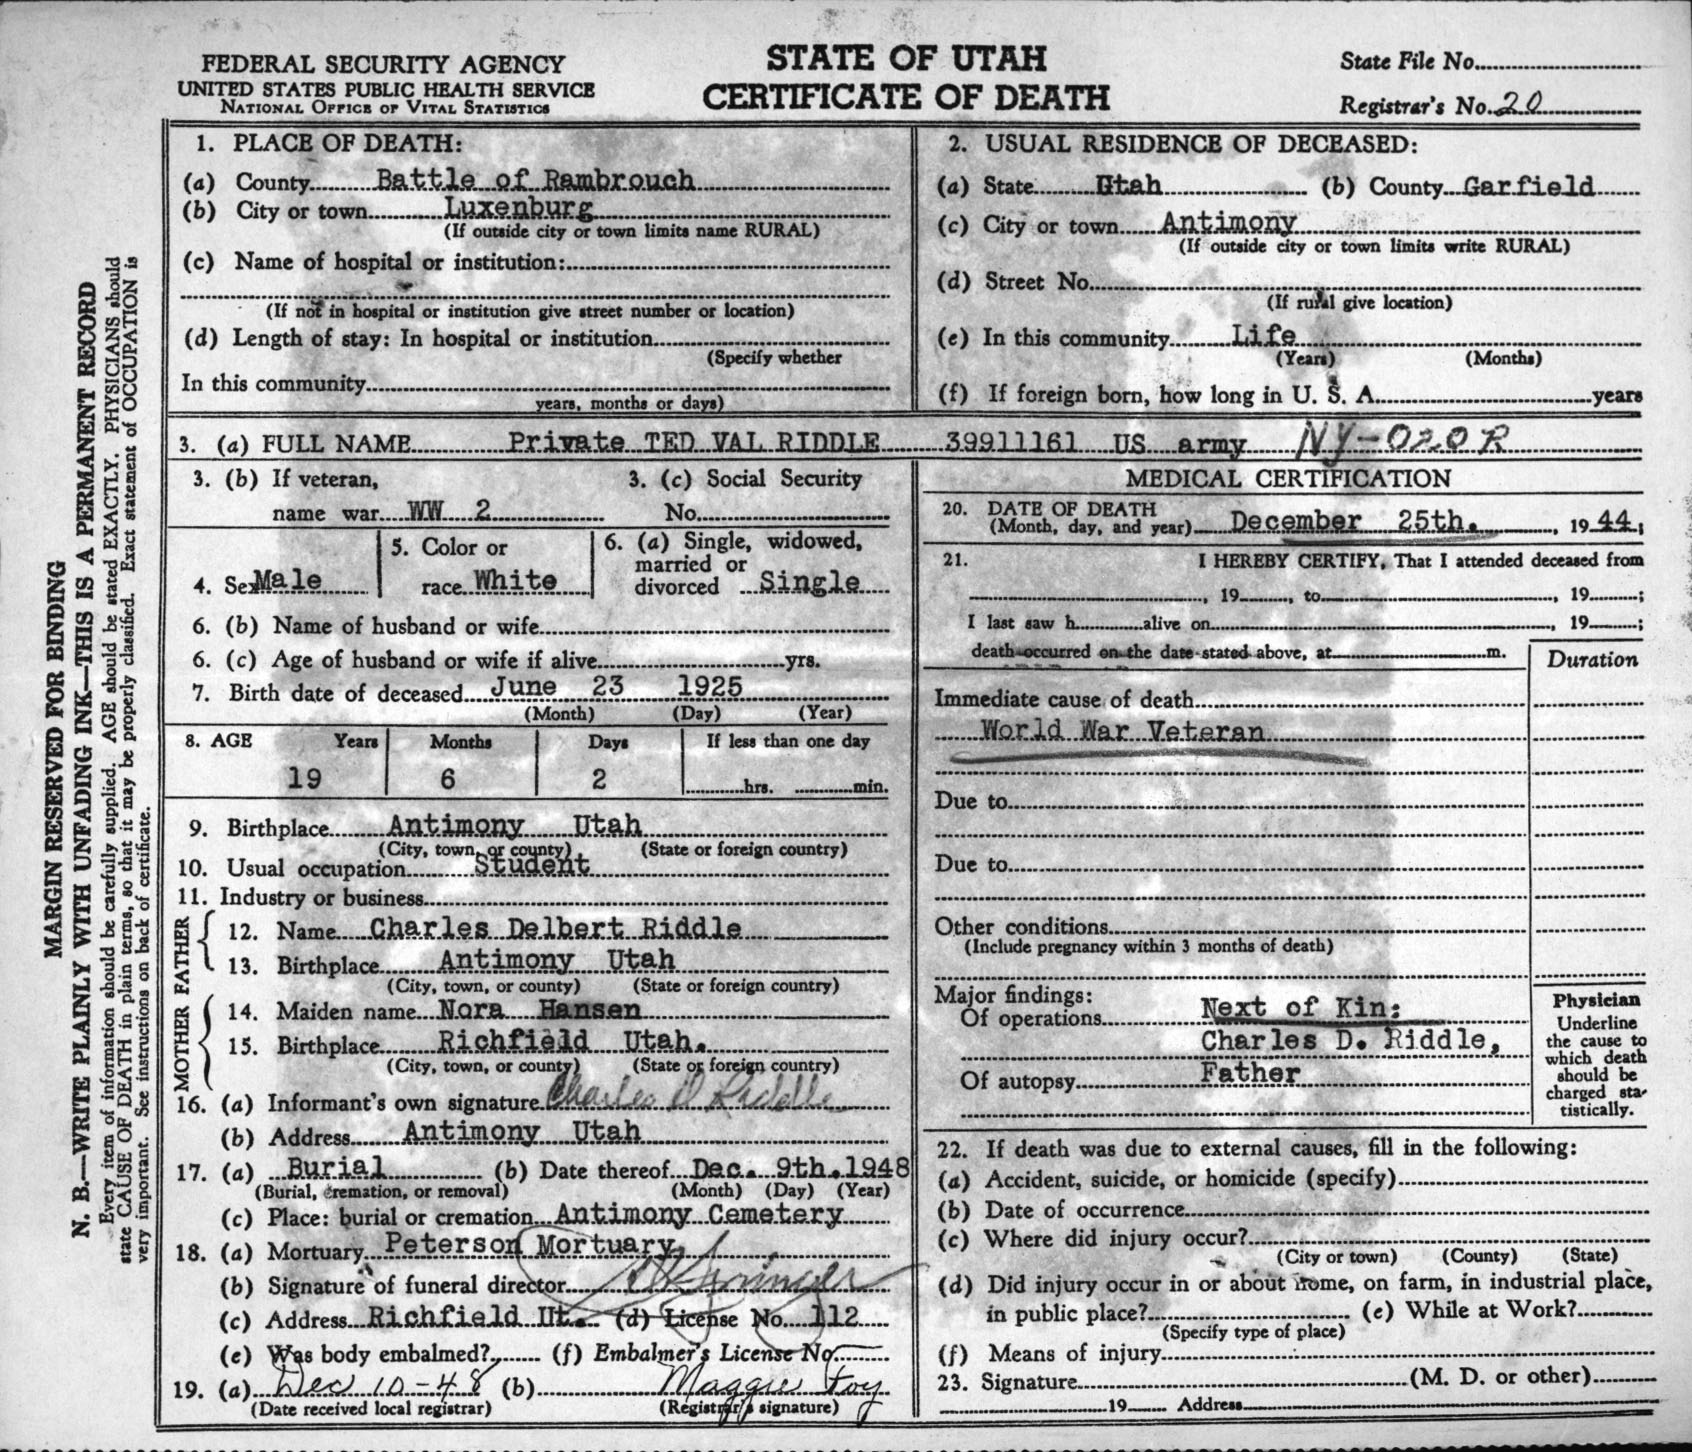 FEDERAL SECURITY AGENCY
UNITED STATES PUBLIC HEALTH SERVICE
NATIONAL OFFICE OF VITAL STATISTICS
STATE OF UTAH
CERTIFICATE OF DEATH
State File No.
Registrar's No. 20
MARGIN RESERVED FOR BINDING
N. B.—WRITE PLAINLY WITH UNFADING INK—THIS IS A PERMANENT RECORD
Every item of information should be carefully supplied. AGE should be stated EXACTLY. PHYSICIANS should
state CAUSE OF DEATH in plain terms, so that it may be properly classified. Exact statement of OCCUPATION is
very important. See instructions on back of certificate.
1. PLACE OF DEATH:
(a) County Battle of Rambrouch
(b) City or town Luxenburg
(If outside city or town limits name RURAL)
(c) Name of hospital or institution:
(If not in hospital or institution give street number or location)
(d) Length of stay: In hospital or institution
(Specify whether
In this community
years, months or days)
2. USUAL RESIDENCE OF DECEASED:
(a) State Utah (b) County Garfield
(c) City or town Antimony
(If outside city or town limits write RURAL)
(d) Street No.
(If rural give location)
(e) In this community Life
(Years) (Months)
(f) If foreign born, how long in U. S. A. years
3. (a) FULL NAME Private TED VAL RIDDLE 39911161 US army NY-020R
3. (b) If veteran, 3. (c) Social Security
name war WW 2 No.
4. Sex Male
5. Color or
race White
6. (a) Single, widowed,
married or
divorced Single
6. (b) Name of husband or wife
6. (c) Age of husband or wife if alive yrs.
7. Birth date of deceased June 23 1925
(Month) (Day) (Year)
8. AGE Years Months Days If less than one day
19 6 2 hrs. min.
9. Birthplace Antimony Utah
(City, town, or county) (State or foreign country)
10. Usual occupation Student
11. Industry or business
FATHER
12. Name Charles Delbert Riddle
13. Birthplace Antimony Utah
(City, town, or county) (State or foreign country)
MOTHER
14. Maiden name Nora Hansen
15. Birthplace Richfield Utah.
(City, town, or county) (State or foreign country)
16. (a) Informant's own signature Charles D Riddle
(b) Address Antimony Utah
17. (a) Burial (b) Date thereof Dec. 9th. 1948
(Burial, cremation, or removal) (Month) (Day) (Year)
(c) Place: burial or cremation Antimony Cemetery
18. (a) Mortuary Peterson Mortuary
(b) Signature of funeral director
(c) Address Richfield Ut. (d) License No. 112
(e) Was body embalmed? (f) Embalmer's License No.
19. (a) Dec 10-48 (b) Maggie Foy
(Date received local registrar) (Registrar's signature)
MEDICAL CERTIFICATION
20. DATE OF DEATH
(Month, day, and year) December 25th. , 19 44;
21. I HEREBY CERTIFY, That I attended deceased from
, 19 , to , 19 ;
I last saw h alive on , 19 ;
death occurred on the date stated above, at m.
Duration
Immediate cause of death
World War Veteran
Due to
Due to
Other conditions
(Include pregnancy within 3 months of death)
Major findings:
Of operations Next of Kin:
Charles D. Riddle,
Of autopsy Father
Physician
Underline
the cause to
which death
should be
charged sta-
tistically.
22. If death was due to external causes, fill in the following:
(a) Accident, suicide, or homicide (specify)
(b) Date of occurrence
(c) Where did injury occur?
(City or town) (County) (State)
(d) Did injury occur in or about home, on farm, in industrial place,
in public place? (e) While at Work?
(Specify type of place)
(f) Means of injury
23. Signature (M. D. or other)
19 Address